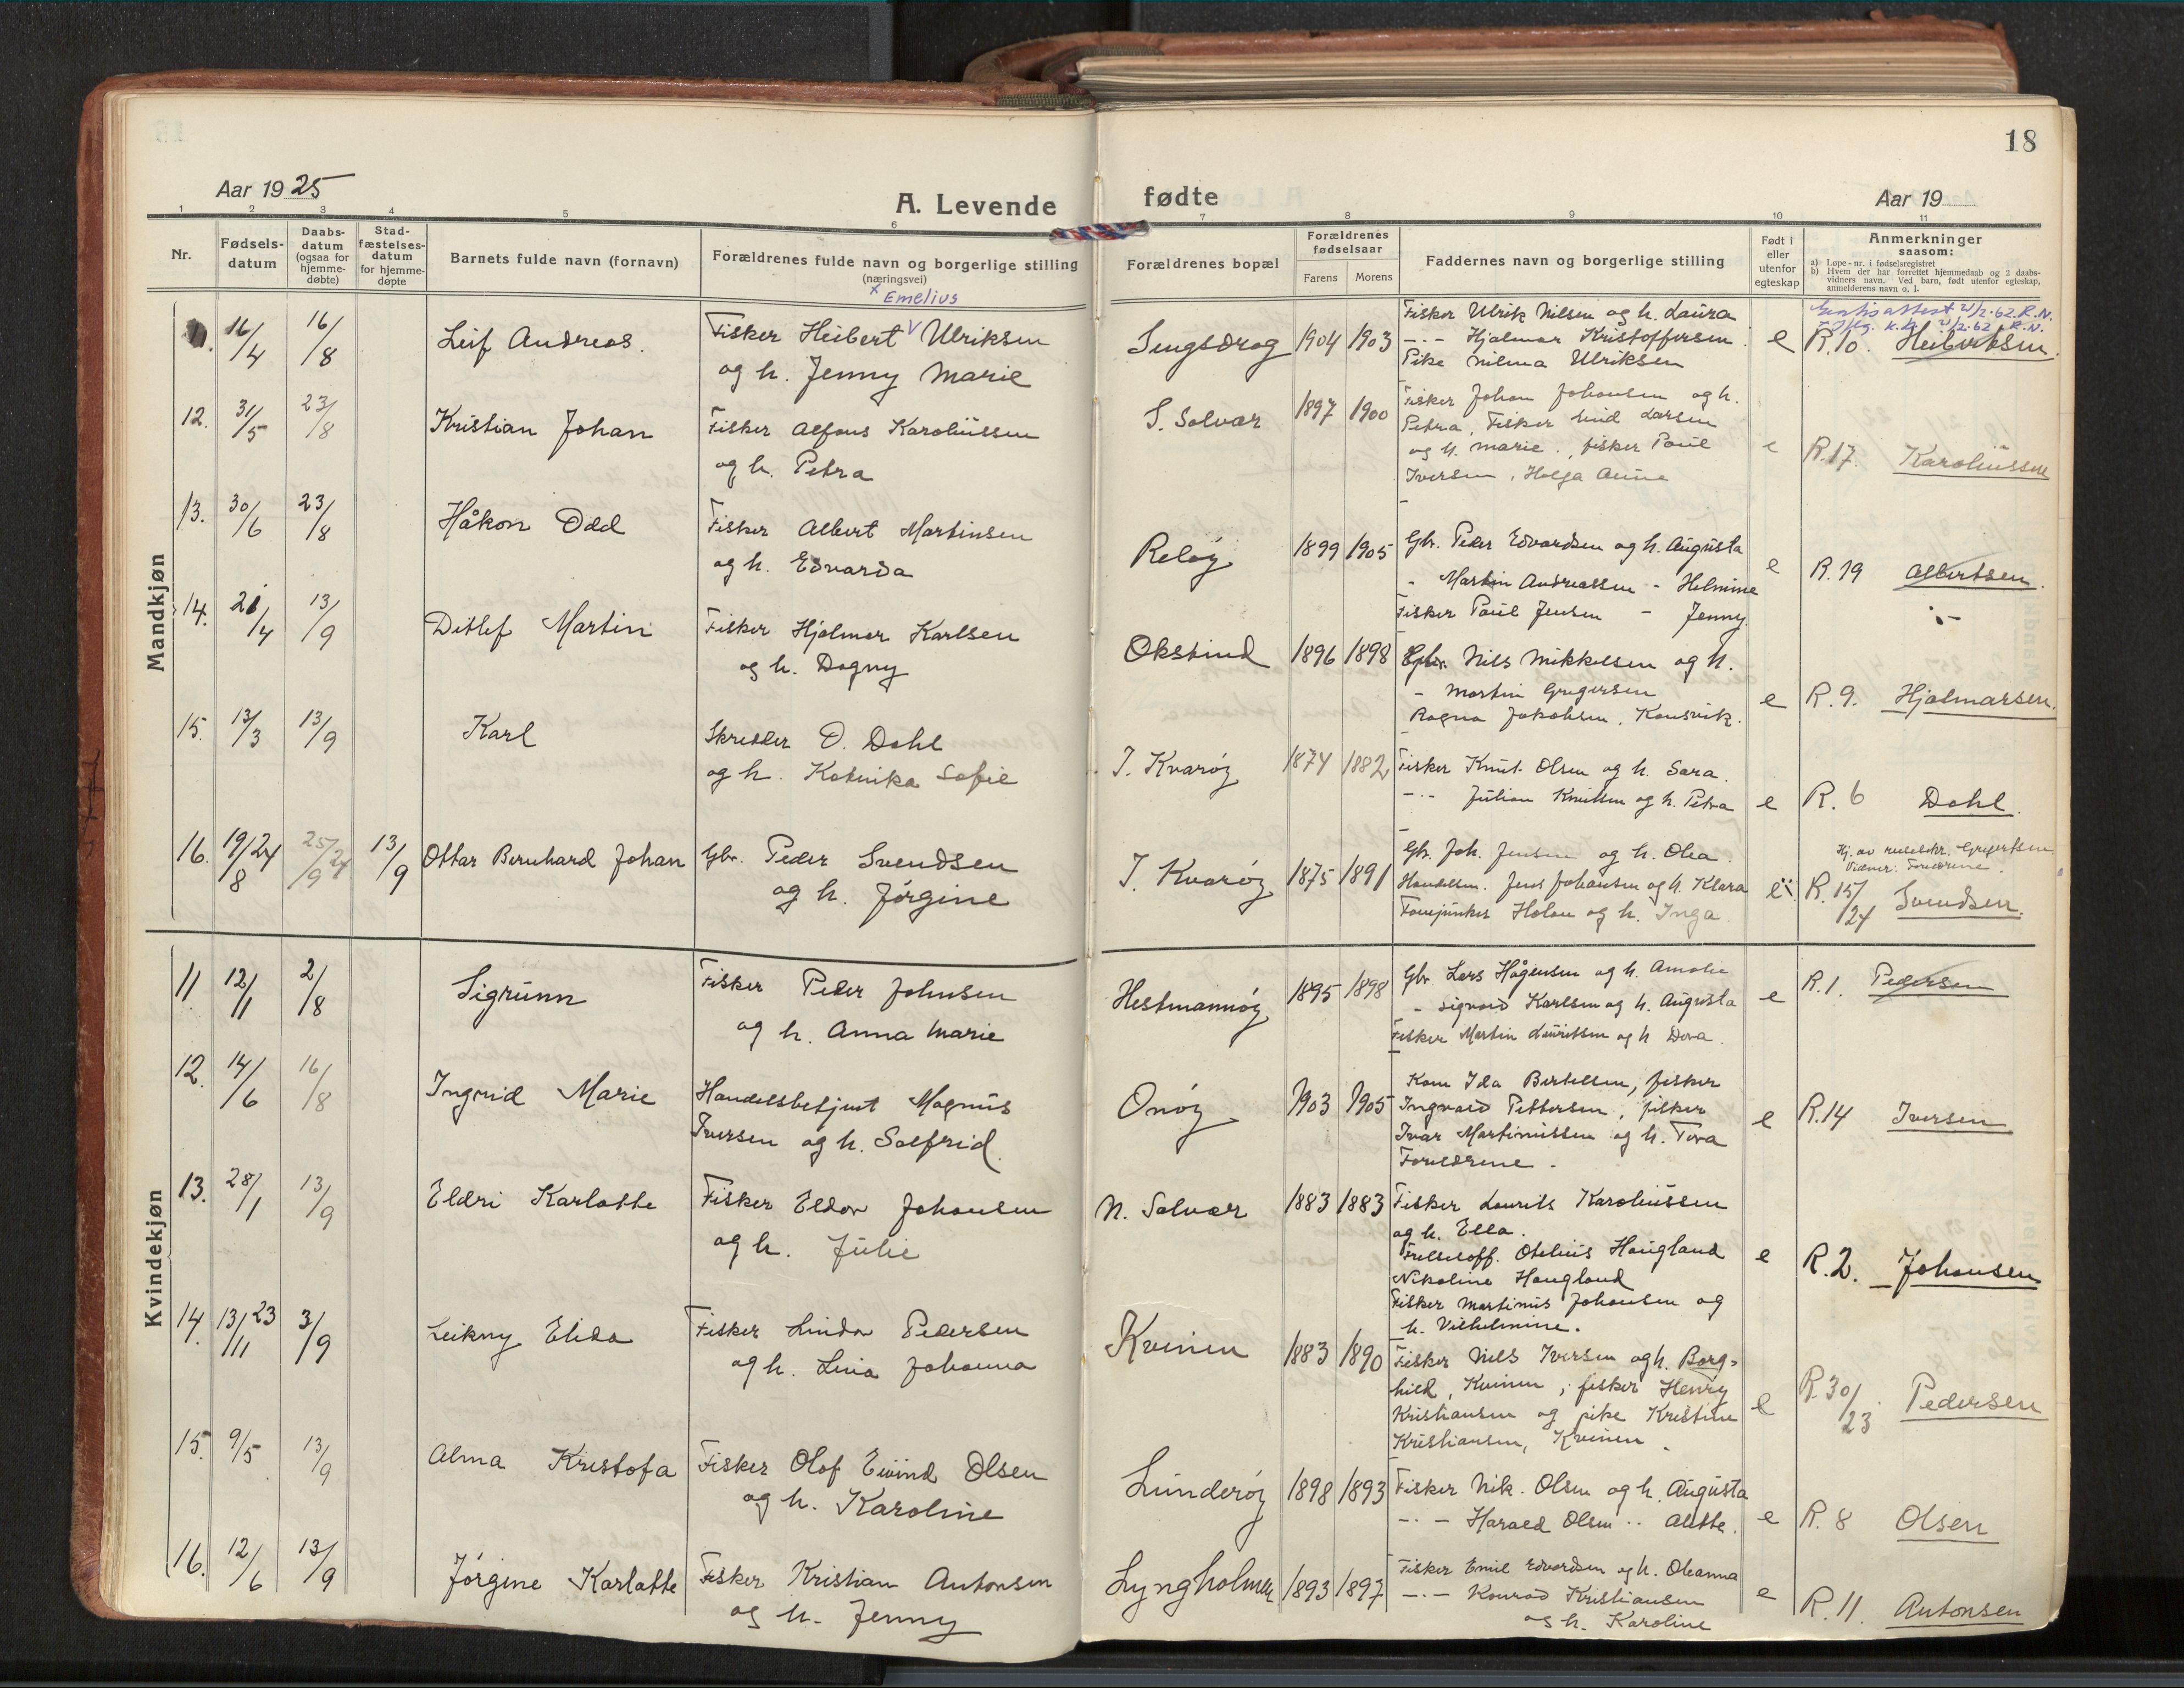 18
Aar 1925
A. Levende
fødte
Aar 19
1 2 3 4 5 6 7 8 9 10 11
Nr.
Fødsels-
datum
Daabs-
datum
(ogsaa for
hjemme-
døbte)
Stad-
fæstelses-
datum
for hjemme-
døpte
Barnets fulde navn (fornavn)
Forældrenes fulde navn og borgerlige stilling
(næringsvei)
Forældrenes bopæl
Forældrenes
fødselsaar
Farens Morens
Faddernes navn og borgerlige stilling
Født i
eller
utenfor
egteskap
Anmerkninger
saasom:
a) Løpe-nr. i fødselsregistret
b) Hvem der har forrettet hjemmedaab og 2 daabs-
vidners navn. Ved barn, født utenfor egteskap,
anmelderens navn o. l.
Mandkjøn
x Emelius
16/4 16/8 Leif Andreas. Fisker Heibert V Ulriksen
og h. Jenny Marie
Lengsdrag 1904 1903
Fisker Ulrik Nilsen og h. Laura
-"- Hjalmar Kristoffersen
Pike Nilma Ulriksen
e R.10. Heibertsen
12. 31/5 23/8 Kristian Johan Fisker Alfons Karoliussen
og h. Petra
S. Solvær 1897 1900
Fisker Johan Johansen og h.
Petra, Fisker Lind Larsen
og h. Marie, fisker Paul
Iversen, Helga Anne
e R.17. Karoliussen
13. 30/6 23/8 Håkon Odd Fisker Albert Martinsen
og h. Edvarda
Reløy 1899 1905
Gbr. Peder Edvardsen og h. Augusta
- Martin Andreassen - Helmine
Fisker Paul Jensen - Jenny
e R.19 Albertsen
14. 21/4 13/9 Ditlef Martin Fisker Hjalmar Karlsen
og h. Dagny
Økstind 1896 1898
Gbr. Nils Mikkelsen og h.
- Martin Gregersen
Ragna Jakobsen, Konsvik.
e R.9. Hjalmarsen.
15. 13/3 13/9 Karl Skredder O. Dahl
og h. Katinka Sofie
I. Kvarøy 1874 1882
Fisker Knut Olsen og h. Sara.
-"- Julian Knutsen og h. Petra
e R.6 Dahl.
16. 19/8 24 25/9 24 13/9 Ottar Bernhard Johan Gbr. Peder Svendsen
og h. Jørgine
I. Kvarøy 1875 1891
Gbr. Joh. Jensen og h. Olea
Handelsm. Jens Johansen og h. Klara
og h. Inga
Vidner: Foreldrene.
R.15/24 Svendsen.
Kvindekjøn
11 12/1 2/8 Sigrunn Fisker Peder Johnsen
og h. Anna Marie
Hestmannøy 1895 1898
Gbr. Lars Hågensen og h. Amalie
- Sigvard Karlsen og h. Augusta
Fisker Martin Lauritsen og h Dora.
e R.1. Pedersen
12. 14/6 16/8 Ingrid Marie Handelsbetjent Magnus
Iversen og h. Solfrid.
Onøy 1903 1905
Kone Ida Bertelsen, fisker
Ingvald Pettersen, fisker
Ivar Martinussen og h. Tora
Foreldrene.
e R.14 Iversen
13. 28/1 13/9 Eldri Karlotte Fisker Eldor Johansen
og h. Julie
N. Solvær 1883 1883
Fisker Laurits Karoliussen
og h. Ella.
Frelsesoff. Otelius Haugland
Nikoline Haugland
Fisker Martinus Johansen og
h. Vilhelmine.
e R.2. Johansen
14. 13/11 23 3/9 Leikny Elida Fisker Lindor Pedersen
og h. Lina Johanna
Kvinen 1883 1890
Fisker Nils Iversen og h. Borg-
hild, Kvinen, fisker Henry
Kristiansen og pike Kristine
Kristiansen, Kvinen.
e R.30/23 Pedersen
15. 9/5 13/9 Alma Kristofa Fisker Olof Eivind Olsen
og h. Karoline
Lunderøy 1898 1893
Fisker Nik. Olsen og h. Augusta
-"- Harald Olsen " Alette.
e R.8 Olsen
16. 12/6 13/9 Jørgine Karlotte Fisker Kristian Antonsen
og h. Jenny
Lyngholmen 1893 1897
Fisker Emil Edvardsen og h. Oleanna
-"- Konrad Kristiansen
og h. Karoline
e R.11. Antonsen